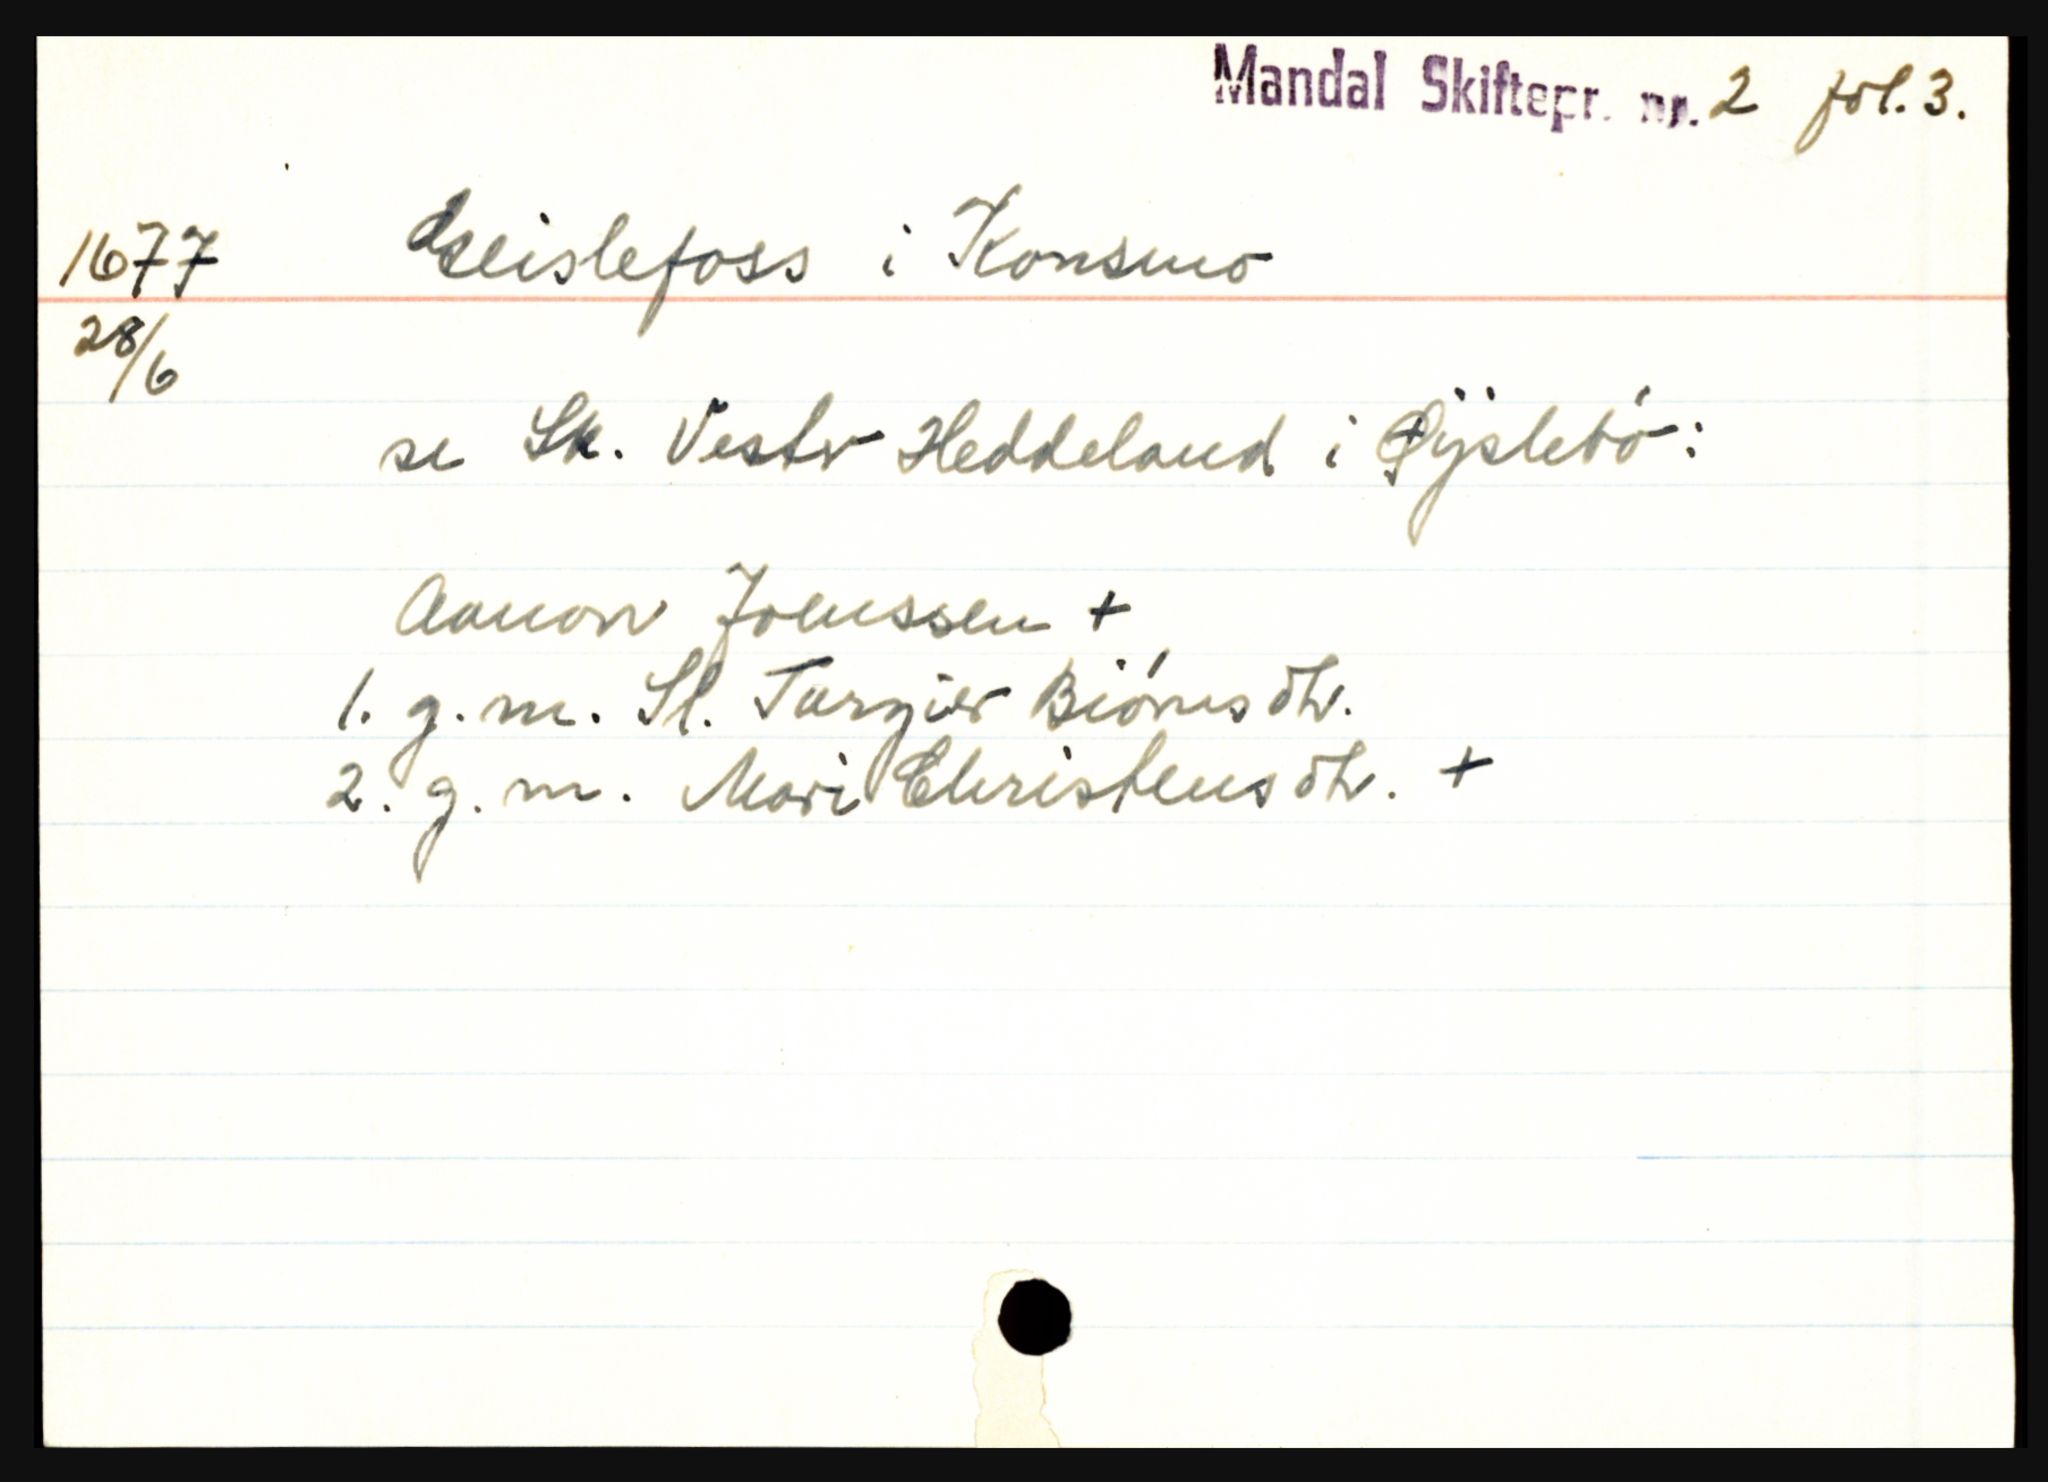 Mandal Skiftepr. nr. 2 fol. 3.
1677 Geislefoss i Konsmo
28/6
se Sk. Vestr Heddeland i Øÿslebó:
Aanon Joenssen +
1. g.m. Sl. Targier Biórns dtr.
2. g.m. Mari Christens dtr. +